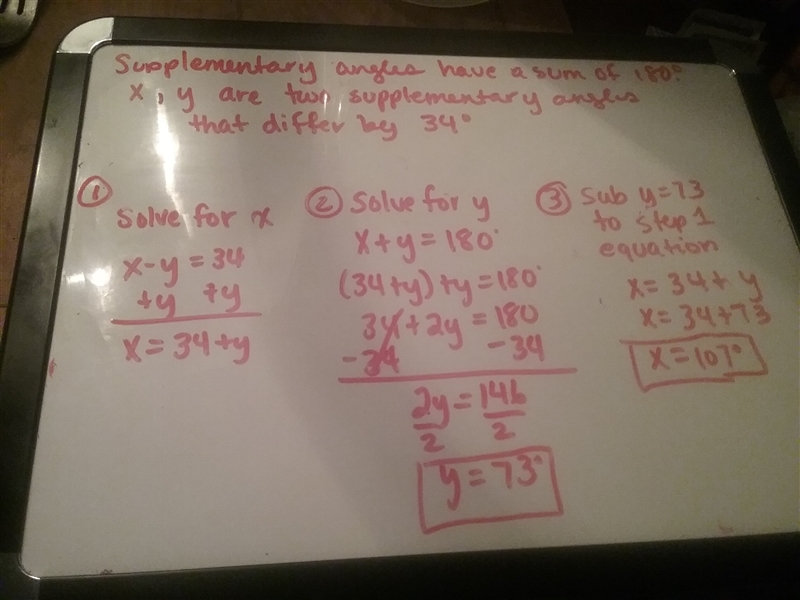 Supplementary angles have a sum of 180°.
x, y are two supplementary angles
that differ by 34°
①
Solve for x
x - y = 34
+y +y
x = 34 + y
② Solve for y
x + y = 180°
(34 + y) + y = 180°
34 + 2y = 180
-34 -34
2y = 146
2 2
y = 73°
③ Sub y = 73
to step 1
equation
x = 34 + y
x = 34 + 73
x = 107°